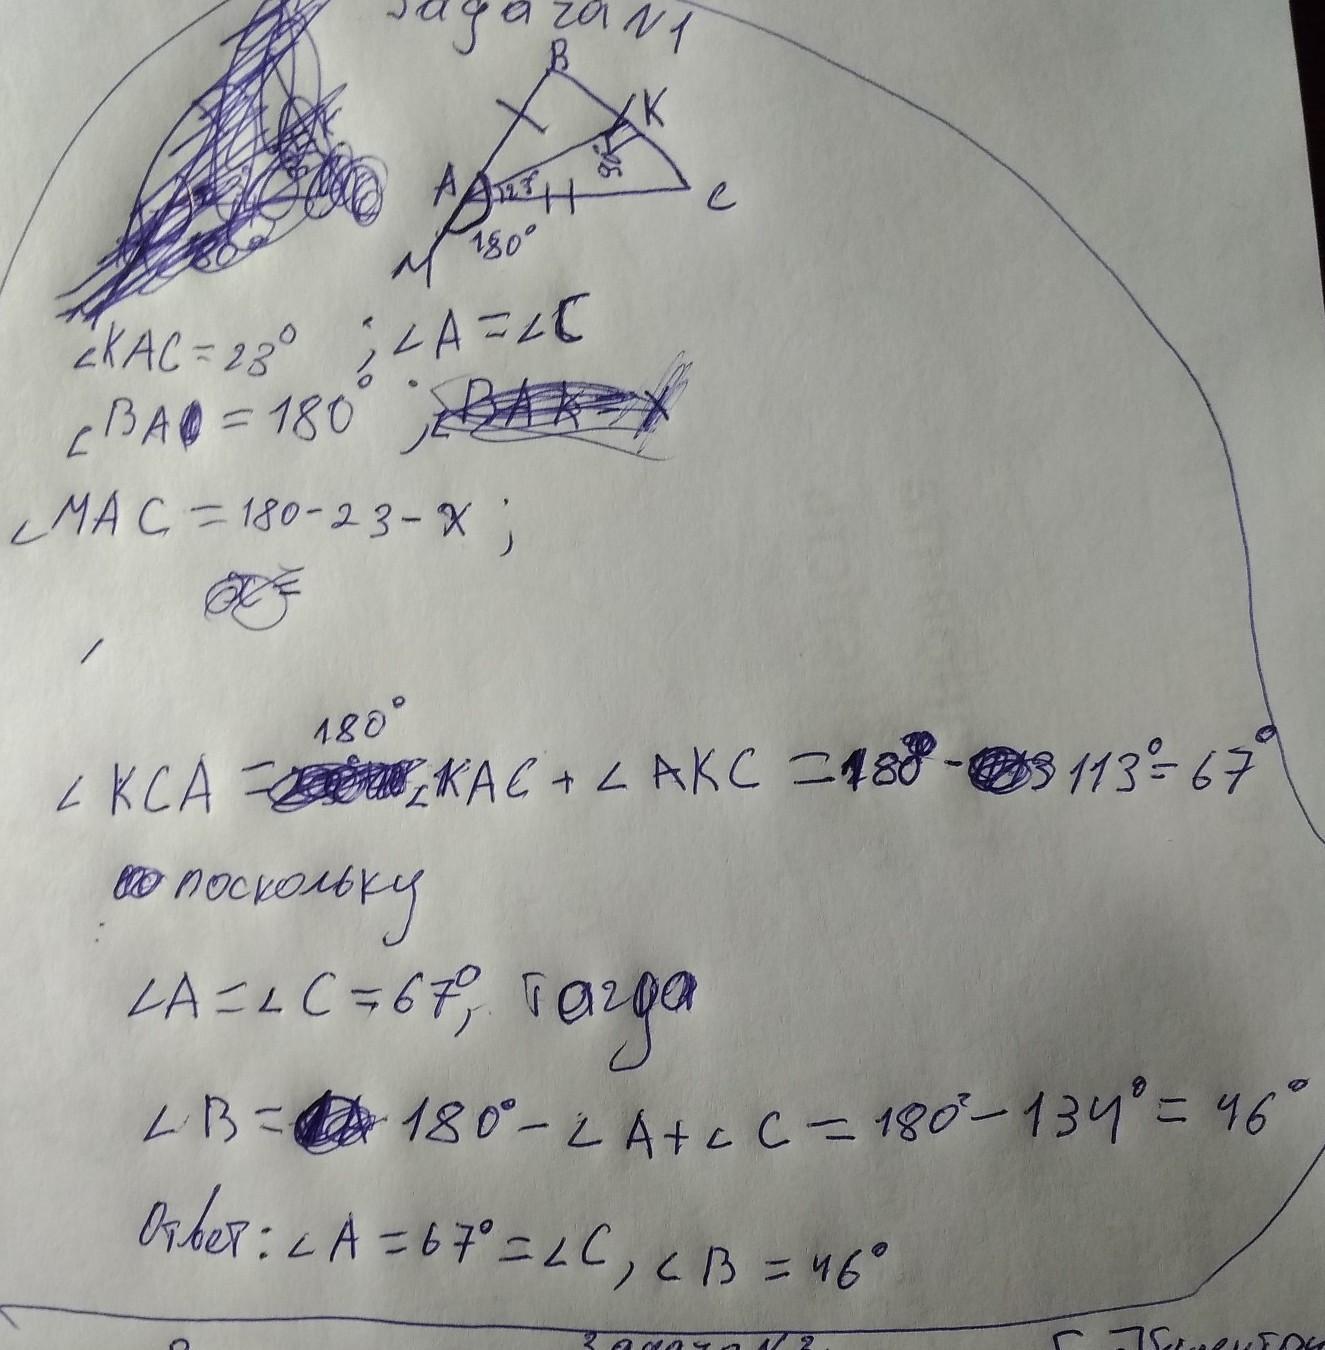 Задача N1
B
K
A 23° 90°
C
180°
M
∠KAC = 23° ; ∠A = ∠C
∠BAC = 180° ;
∠MAC = 180 - 23 - x ;
180°
∠KCA = ∠KAC + ∠AKC = 180° - 113° = 67°
поскольку
∠A = ∠C = 67°, тагда
∠B = 180° - ∠A + ∠C = 180° - 134° = 46°
Ответ: ∠A = 67° = ∠C, ∠B = 46°
Задача N2